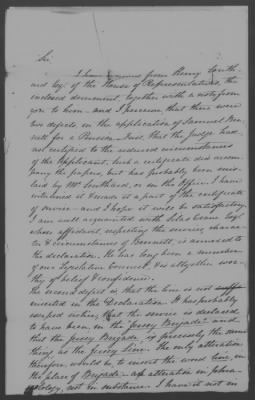 Sir,
I have received from Henry South-
ard Esq. of the House of Representatives, the
enclosed document, together with a note from
you to him. and I perceive, that there were
two defects, in the application of Samuel Ben-
nett for a Pension. First, that the Judge had
not certified to the reduced circumstances
of the Applicant. Such a certificate did accom-
pany the papers, but has probably been mis-
laid by Mr. Southard, or in the Office. I have
introduced it & made it a part of the certificate
of service and I hope it may be satisfactory.
I am well acquainted with Silas Esq.
whose affidavit, respecting the service, charac-
ter & circumstances of Bennett, is annexed to
the declaration. He has long been a member
of our Legislative Council, & is altogether wor-
thy of belief & confidence.
The second defect is, that the line is not
inserted in the Declaration. It has probably
escaped notice, that the service is declared
to have been in the Jersey Brigade and
that the Jersey Brigade is precisely the same
thing as the Jersey Line. The only alteration
therefore, would be to insert the word line, in
the place of Brigade, an alteration in phra-
seology, not in substance. I have it not in